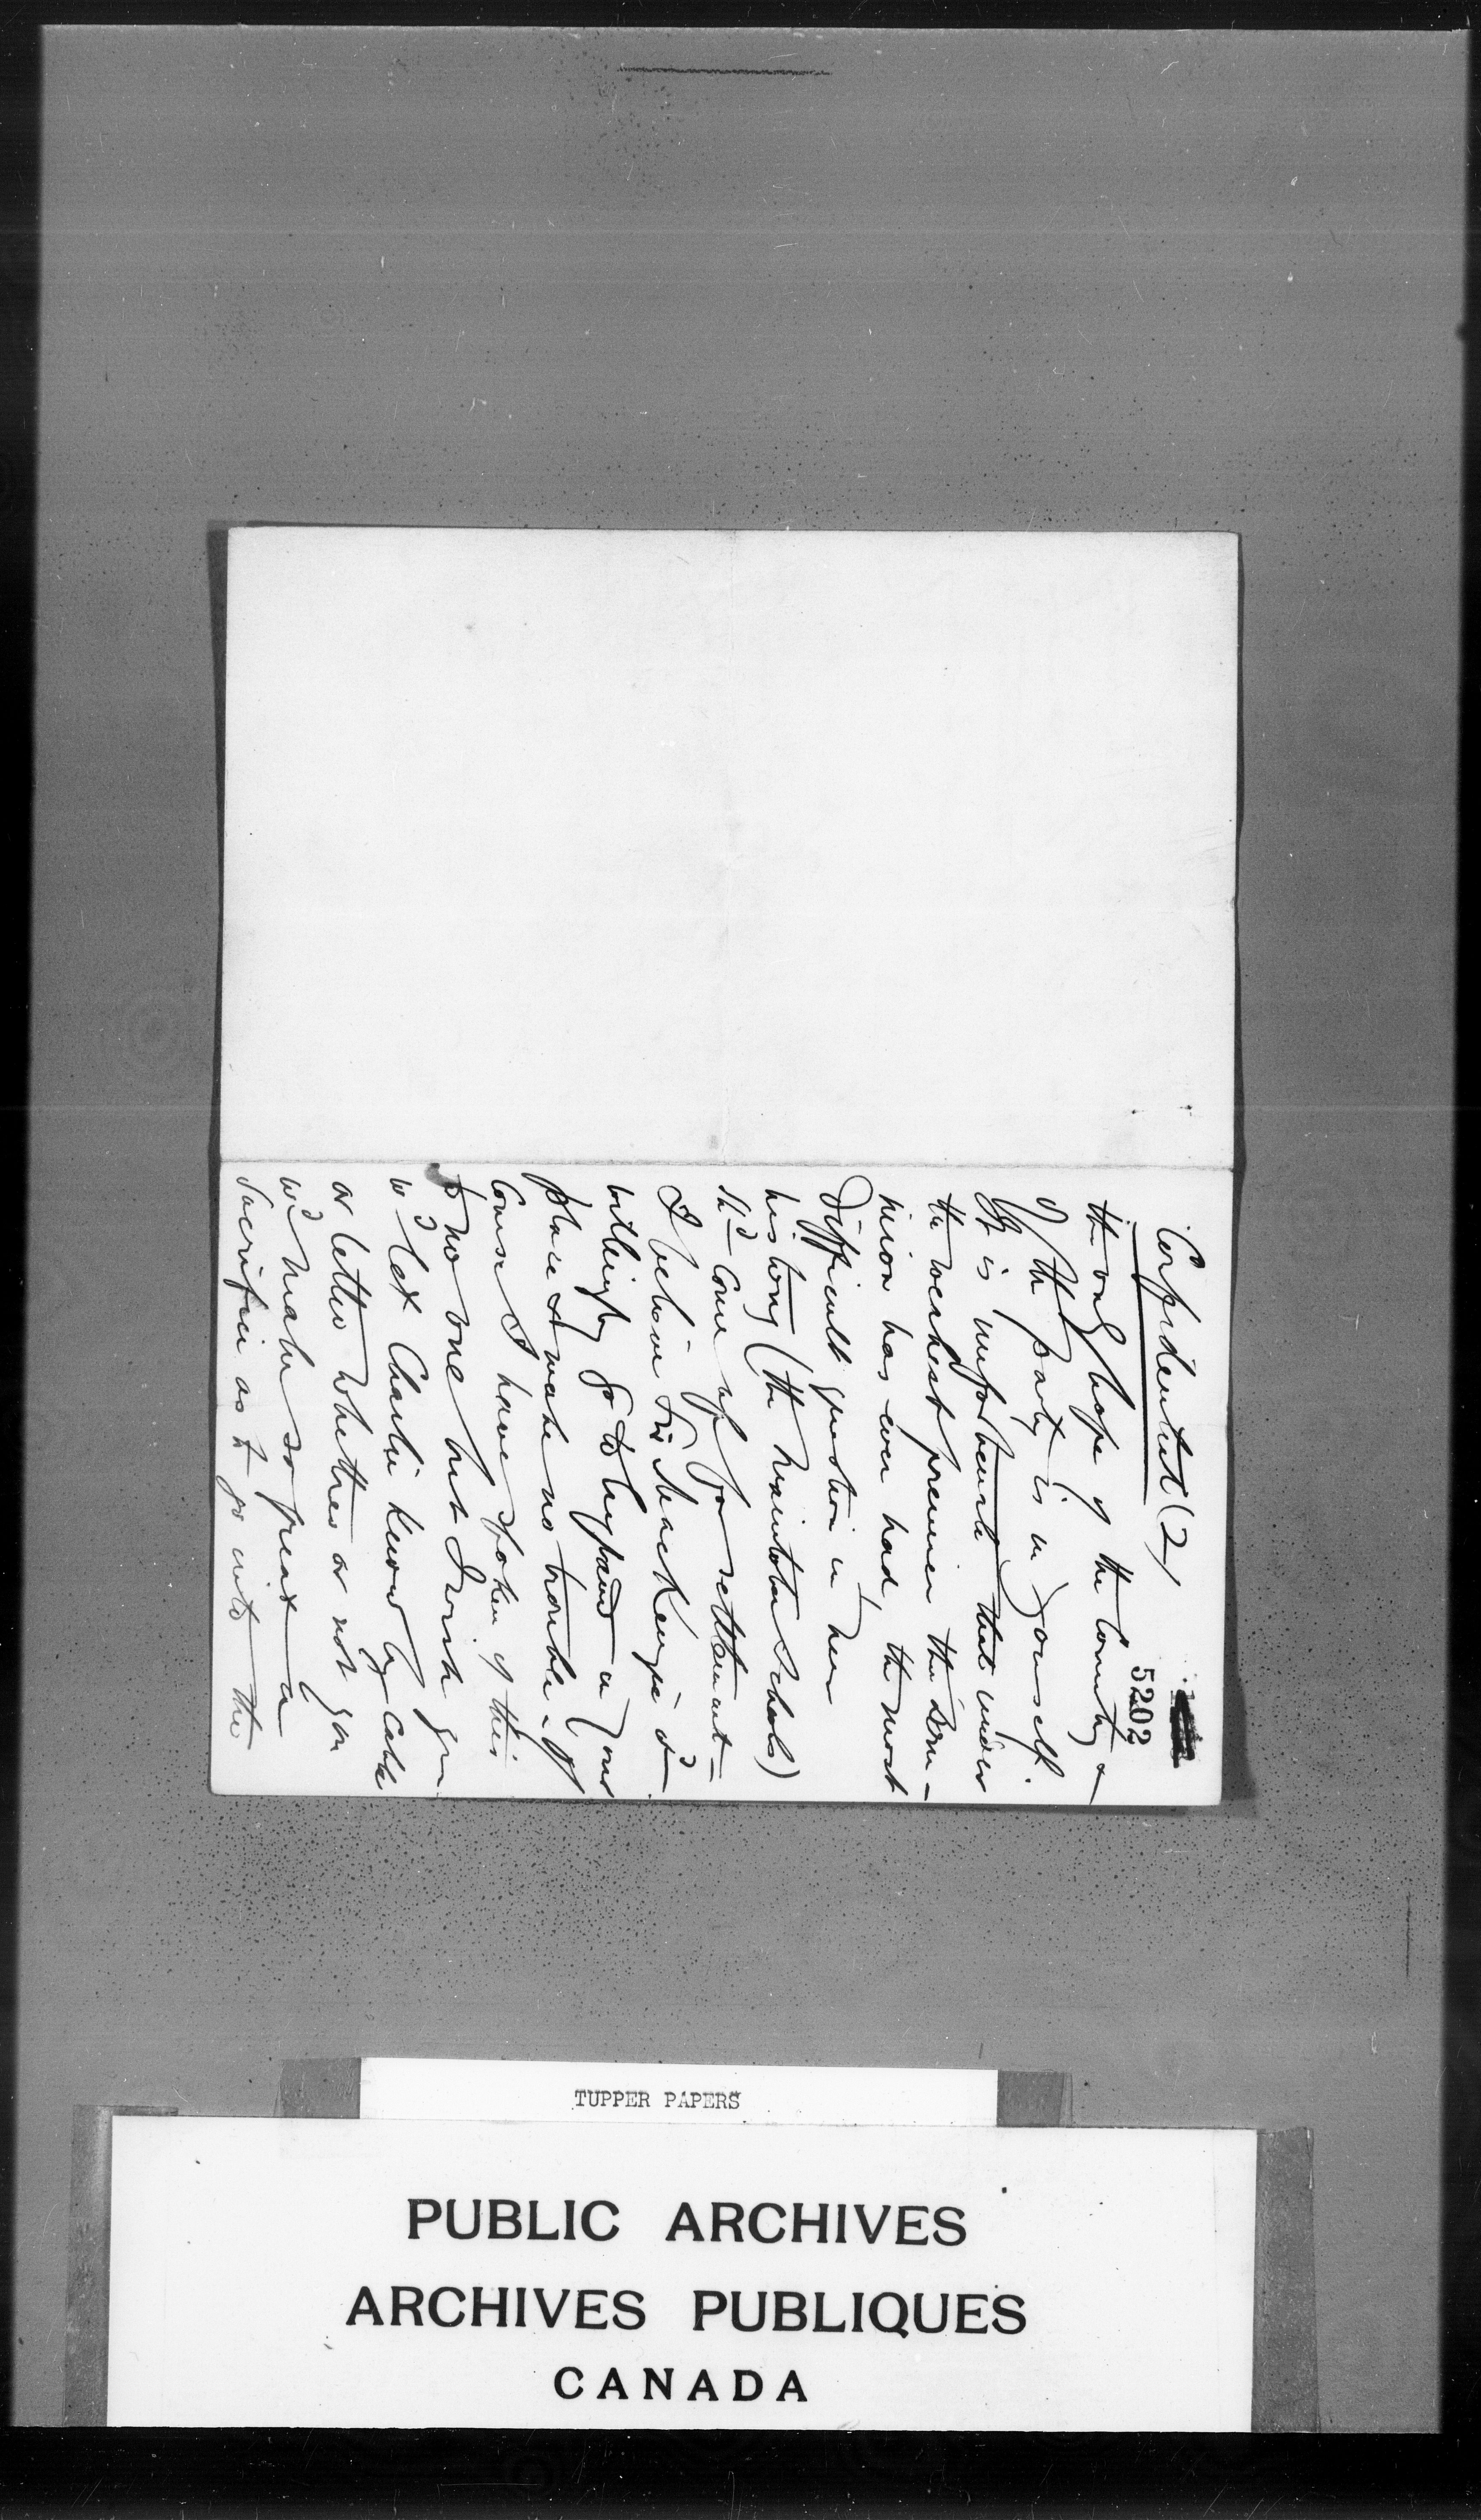 Confidential (2)
5202
the only hope of the Country &
of the party is in yourself.
It is unfortunate that under
the weakest premier the Dom-
inion has ever had, the most
difficult question in her
history (the Manitoba Schools)
shd come up for settlement =
I believe Sir MacKenzie wd
willingly go to England in your
place & make no trouble. Of
Course I have spoken of this
to no one but I wish you
wd let Charlie know by Cable
or letter whether or not you
wd make so great a
sacrifice as to go into the
TUPPER PAPERS
PUBLIC ARCHIVES
ARCHIVES PUBLIQUES
CANADA